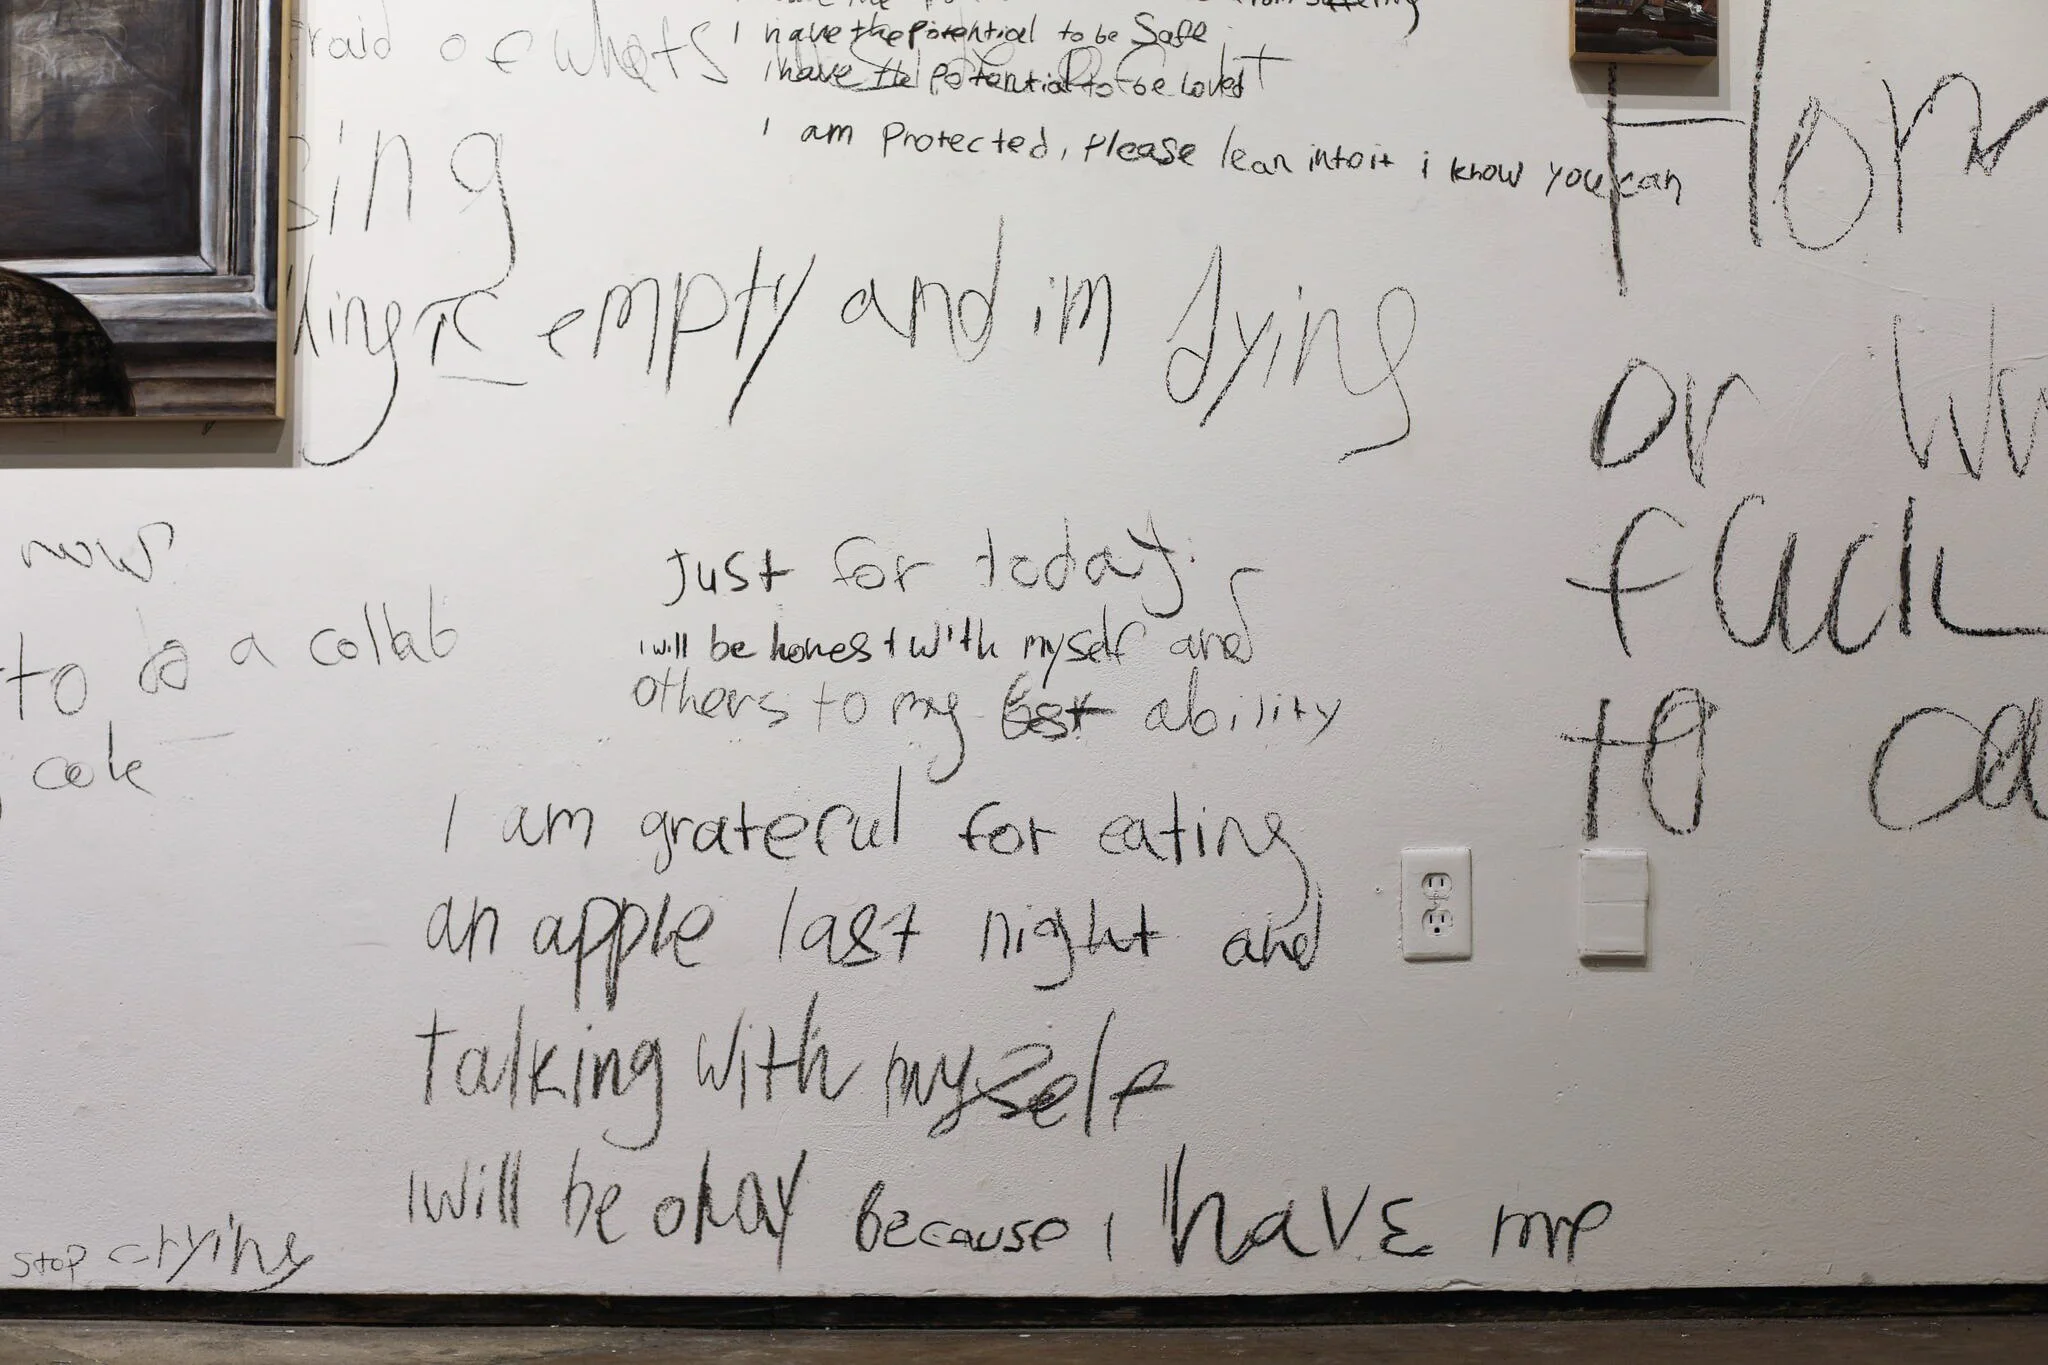 from suffering
I have the potential to be safe
i have the potential to be loved
I am protected, please lean into it i know you can
raid of whats
ing
empty and im dying
or
fuck
to
now
to do a collab
Just for today
i will be honest with myself and
others to my best ability
I am grateful for eating
an apple last night and
talking with myself
I will be okay because i have me
stop crying